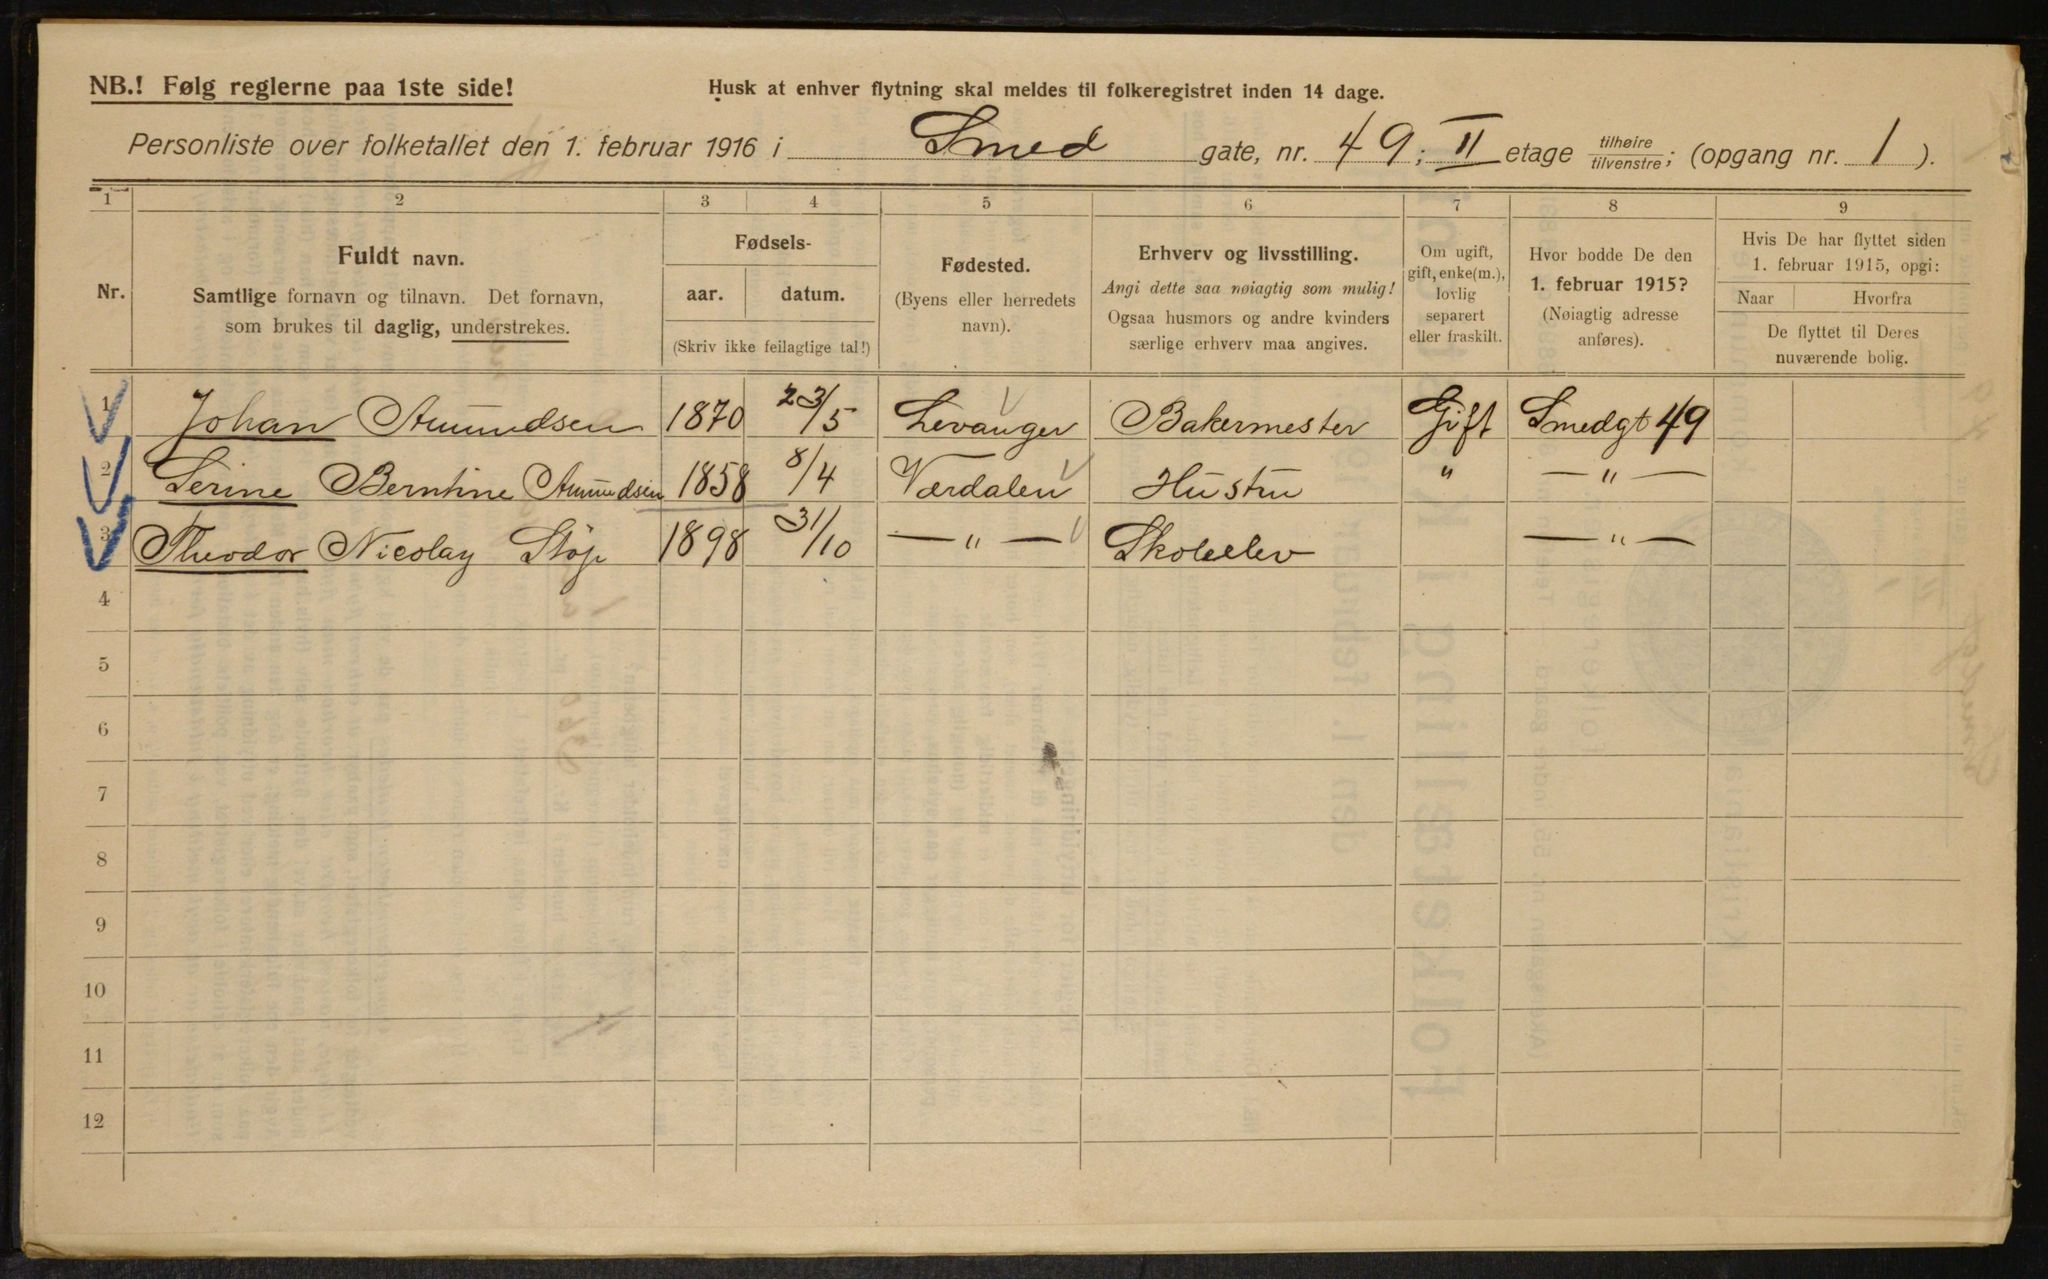 NB.! Følg reglerne paa 1ste side!
Husk at enhver flytning skal meldes til folkeregistret inden 14 dage.
Personliste over folketallet den 1. februar 1916 i Smed gate, nr. 49; II etage tilhøire/tilvenstre; (opgang nr. 1).
1 2 3 4 5 6 7 8 9
Nr.
Fuldt navn.
Samtlige fornavn og tilnavn. Det fornavn,
som brukes til daglig, understrekes.
Fødsels-
aar. datum.
(Skriv ikke feilagtige tal!)
Fødested.
(Byens eller herredets
navn).
Erhverv og livsstilling.
Angi dette saa nøiagtig som mulig!
Ogsaa husmors og andre kvinders
særlige erhverv maa angives.
Om ugift,
gift, enke(m.),
lovlig
separert
eller fraskilt.
Hvor bodde De den
1. februar 1915?
(Nøiagtig adresse
anføres).
Hvis De har flyttet siden
1. februar 1915, opgi:
Naar Hvorfra
De flyttet til Deres
nuværende bolig.
1 Johan Amundsen 1870 23/5 Levanger Bakermester Gift Smedgt 49
2 Serine Berntine Amundsen 1858 8/4 Værdalen Hustru " — " —
3 Theodor Nicolay Støp 1898 31/10 — " — Skoleelev — " —
4
5
6
7
8
9
10
11
12